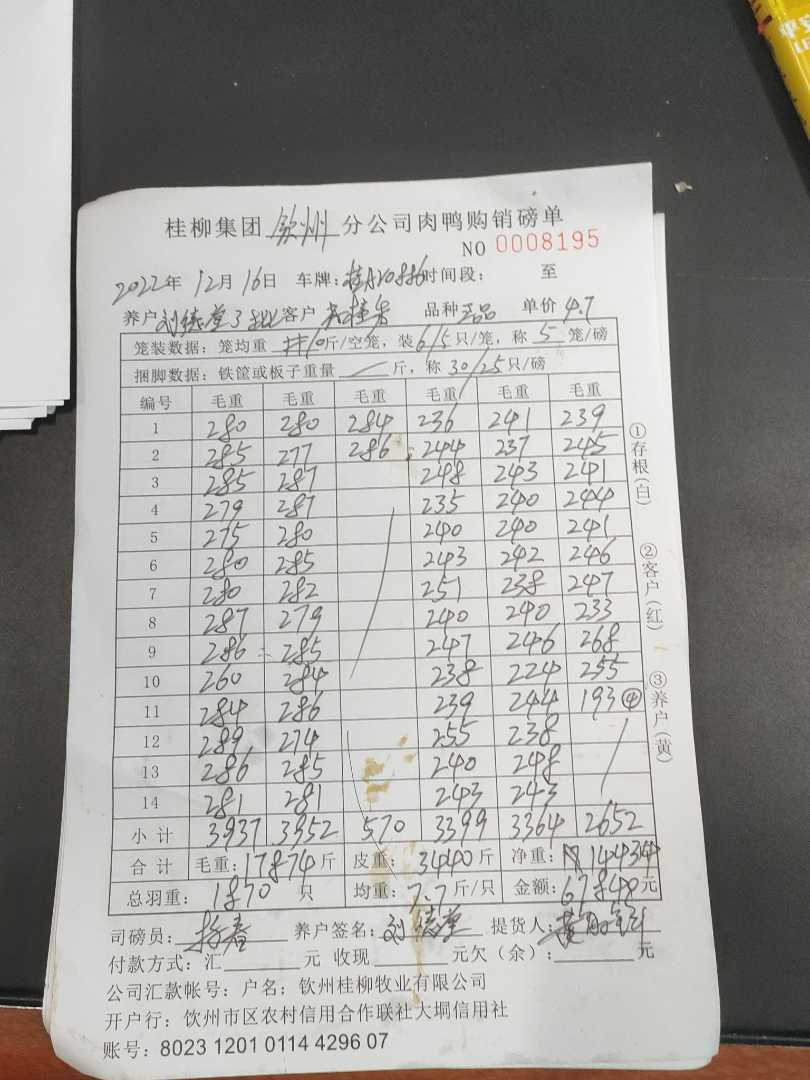 桂柳集团 钦州 分公司肉鸭购销磅单
NO 0008195
2022年 12月 16日 车牌: 时间段: 至
养户 刘德堂 客户 品种 单价 4.7
笼装数据: 笼均重 斤/空笼, 装6/5只/笼, 称 5 笼/磅
捆脚数据: 铁筐或板子重量 斤, 称 30/25只/磅
编号 毛重 毛重 毛重 毛重 毛重 毛重
1 280 280 284 236 241 239
2 285 277 286 244 237 245
3 285 287 248 243 241
4 279 287 235 240 244
5 275 280 240 240 241
6 280 285 243 242 246
7 280 282 251 238 247
8 287 279 240 240 233
9 286 285 247 246 268
10 260 284 238 224 255
11 284 286 239 244 193 ④
12 289 274 255 238
13 286 285 240 248
14 281 281 243 243
小计 3937 3952 570 3399 3364 2652
合计 毛重: 17874斤 皮重: 3440斤 净重: 14434
总羽重: 1870 只 均重: 7.7斤/只 金额: 67848元
司磅员: 养户签名: 刘德堂 提货人:
付款方式: 汇 元 收现 元欠(余): 元
公司汇款帐号: 户名; 钦州桂柳牧业有限公司
开户行: 钦州市区农村信用合作联社大垌信用社
账号: 8023 1201 0114 4296 07
①存根(白)
②客户(红)
③养户(黄)